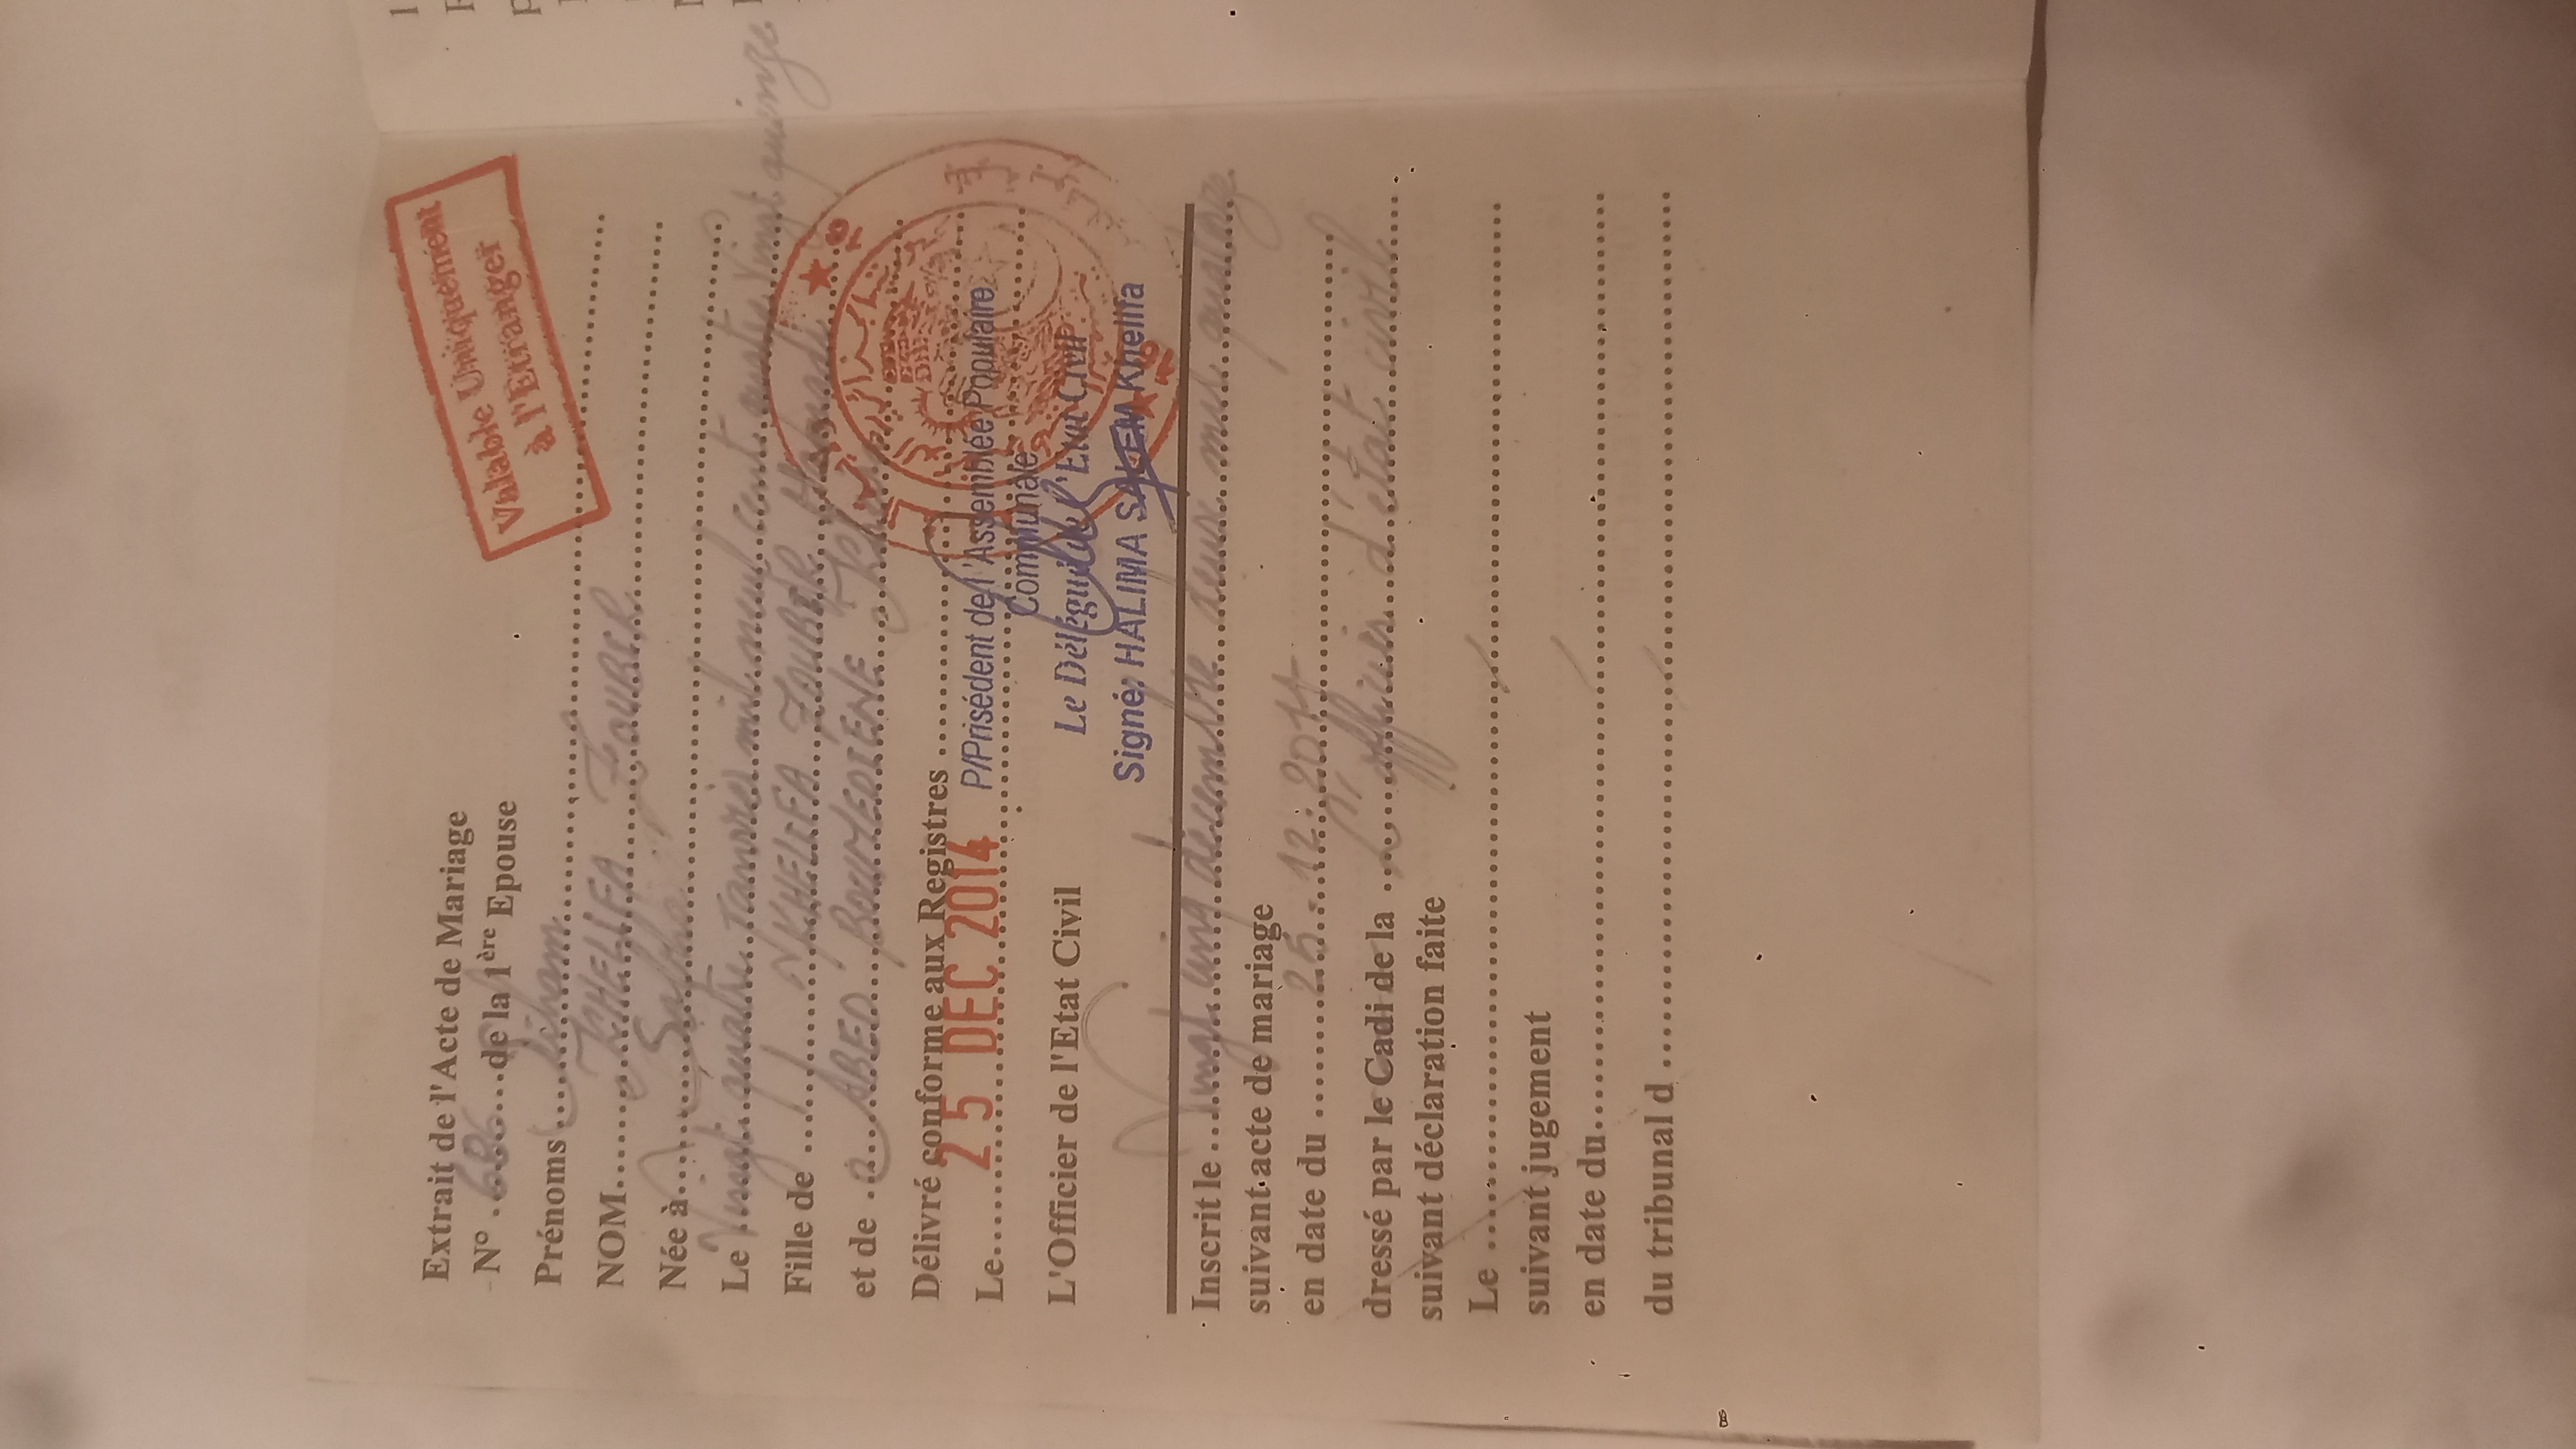 Valable Uniquement
à l'Etranger
Extrait de l'Acte de Mariage
N° 686 de la 1ère Epouse
Prénoms Siham
NOM KHELIFA ZOUBIR
Née à
Le Vingt quatre Janvier mil neuf cent quatre vingt quinze
Fille de KHELIFA ZOUBIR
et de ABED BOUMEDIENE
Délivré conforme aux Registres
Le 25 DEC 2014
P/Prisédent de l'Assemblée Populaire
Communale
L'Officier de l'Etat Civil
Le Délégué de l'Etat Civil
Signé: HALIMA SALEM Khelifa
Inscrit le Vingt cinq décembre deux mil quatorze
suivant acte de mariage
en date du 25.12.2014
dressé par le Cadi de la L'officier d'état civil
suivant déclaration faite
Le /
suivant jugement
en date du /
du tribunal d /